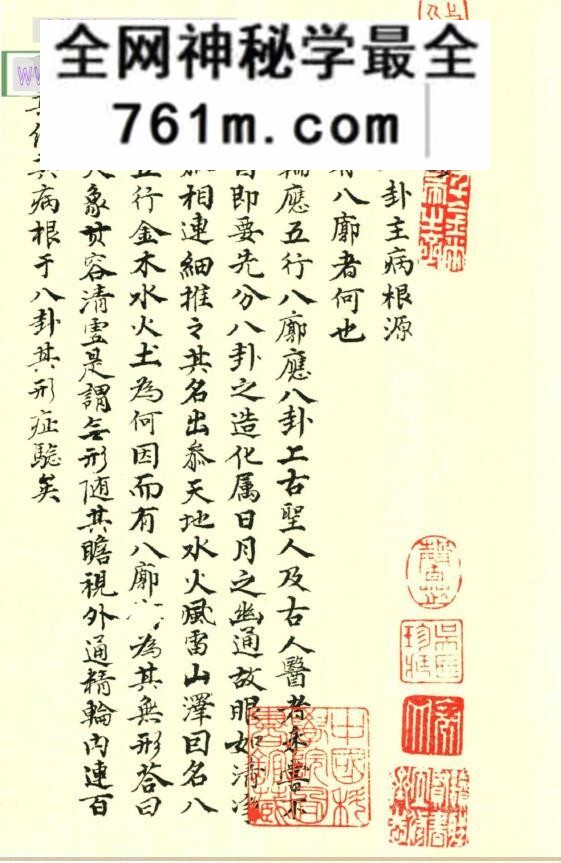 全网神秘学最全
761m.com
卦主病根源
八廓者何也
應五行八廓應八卦上古聖人及古人醫者未嘗不
即要先分八卦之造化属日月之幽通故眼如清
相連細推之其名出叅天地水火風雷山澤因名八
行金木水火土為何因而有八廓 為其無形答曰
象貫容清虛是謂無形随其瞻視外通精輪内連百
病根于八卦其形症驗矣